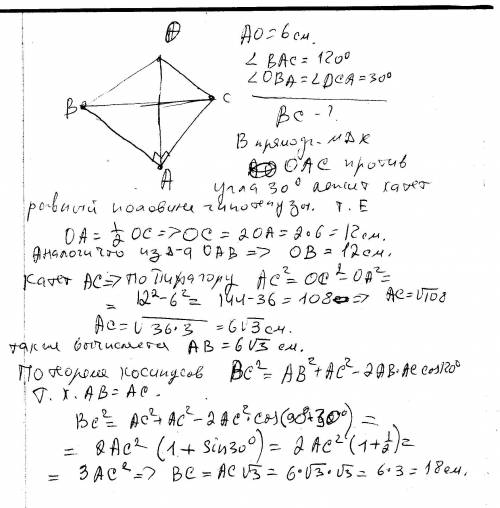 O
AO = 6 см.
∠BAC = 120°
B
C
∠OBA = ∠OCA = 30°
BC - ?
A
В прямоуг-ых
OAC против
угла 30° лежит катет
равный половине гипотенузы. т.Е
OA = 1/2 OC => OC = 2OA = 2·6 = 12 см.
Аналогично из Δ-а OAB => OB = 12 см.
Катет AC => по Пифагору AC² = OC² - OA² =
= 12² - 6² = 144 - 36 = 108 => AC = √108
AC = √36·3 = 6√3 см.
также вычисляется AB = 6√3 см.
По теореме косинусов BC² = AB² + AC² - 2AB·AC cos120°
т.к. AB = AC.
BC² = AC² + AC² - 2AC²·cos(90°+30°) =
= 2AC² (1 + sin30°) = 2AC² (1 + 1/2) =
= 3AC² => BC = AC√3 = 6·√3·√3 = 6·3 = 18 см.